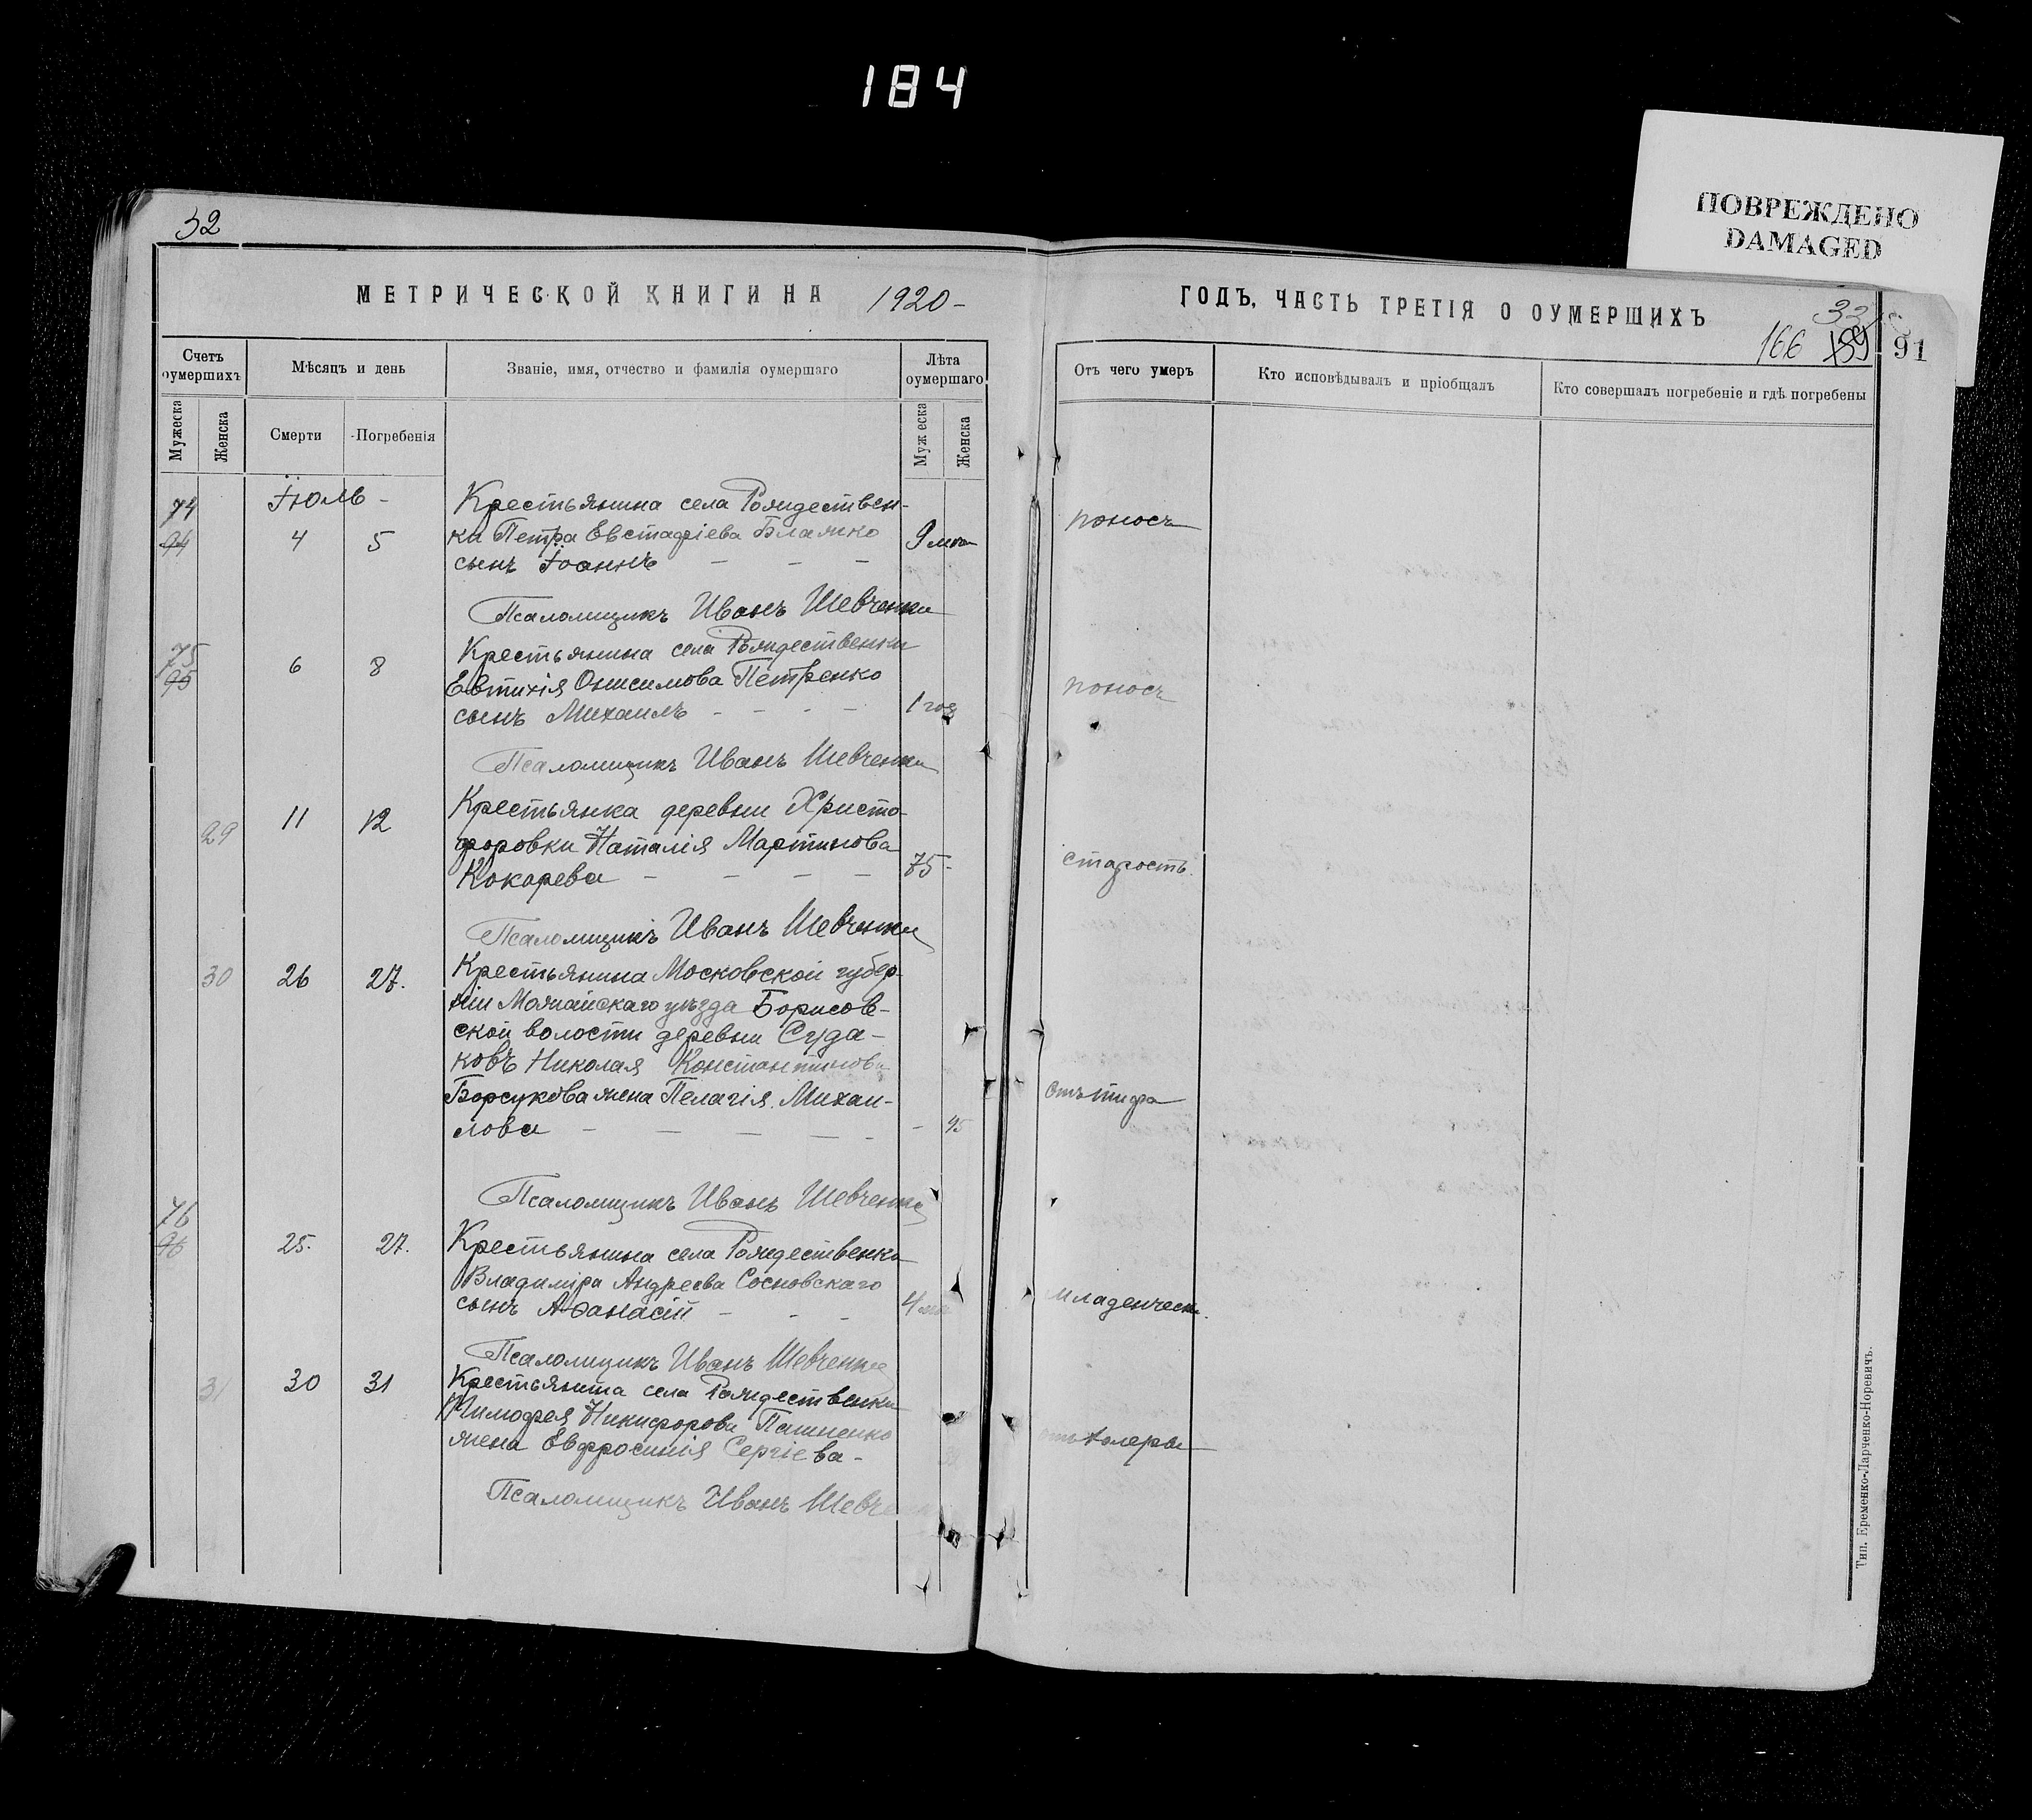 184
ПОВРЕЖДЕНО
DAMAGED
32
МЕТРИЧЕСКОЙ КНИГИ НА 1920-
Счетъ оумершихъ
Мѣсяцъ и день
Званіе, имя, отчество и фамилія оумершаго
Лѣта оумершаго
Мужеска
Женска
Смерти
Погребенія
Мужеска
Женска
Іюль -
74
94
4
5
Крестьянина села Рождествен-
ки Петра Евстафіева Бламко
сынъ Іоаннъ - - -
9 мѣс
Псаломщикъ Иванъ Шевченко
75
95
6
8
Крестьянина села Рождественки
Евтихія Онисимова Петренко
сынъ Михаилъ - - - -
1 год
Псаломщикъ Иванъ Шевченко
29
11
12
Крестьянка деревни Христо-
форовки Наталія Мартинова
Кокарева - - - -
75-
Псаломщикъ Иванъ Шевченко
30
26
27.
Крестьянина Московской губер-
ніи Можайскаго уѣзда Борисов-
ской волости деревни Суда-
ковъ Николая Константинова
Борсукова жена Пелагія Михаи-
лова - - - - -
- 45
Псаломщикъ Иванъ Шевченко
76
96
25.
27.
Крестьянина села Рождественки
Владиміра Андреева Сосновскаго
сынъ Аѳанасій - - -
4 мѣ
Псаломщикъ Иванъ Шевченко
31
30
31
Крестьянина села Рождественки
Тимофея Никифорова Пашненко
жена Евфросинія Сергіева-
Псаломщикъ Иванъ Шевче
ГОДЪ, ЧАСТЬ ТРЕТІЯ О ОУМЕРШИХЪ
33
166 159
91
Отъ чего умеръ
Кто исповѣдывалъ и пріобщалъ
Кто совершалъ погребеніе и гдѣ погребены
поносъ
поносъ
старость.
отъ тифа
младенческ.
отъ холеры
Тип. Еременко-Ларченко-Норевичъ.